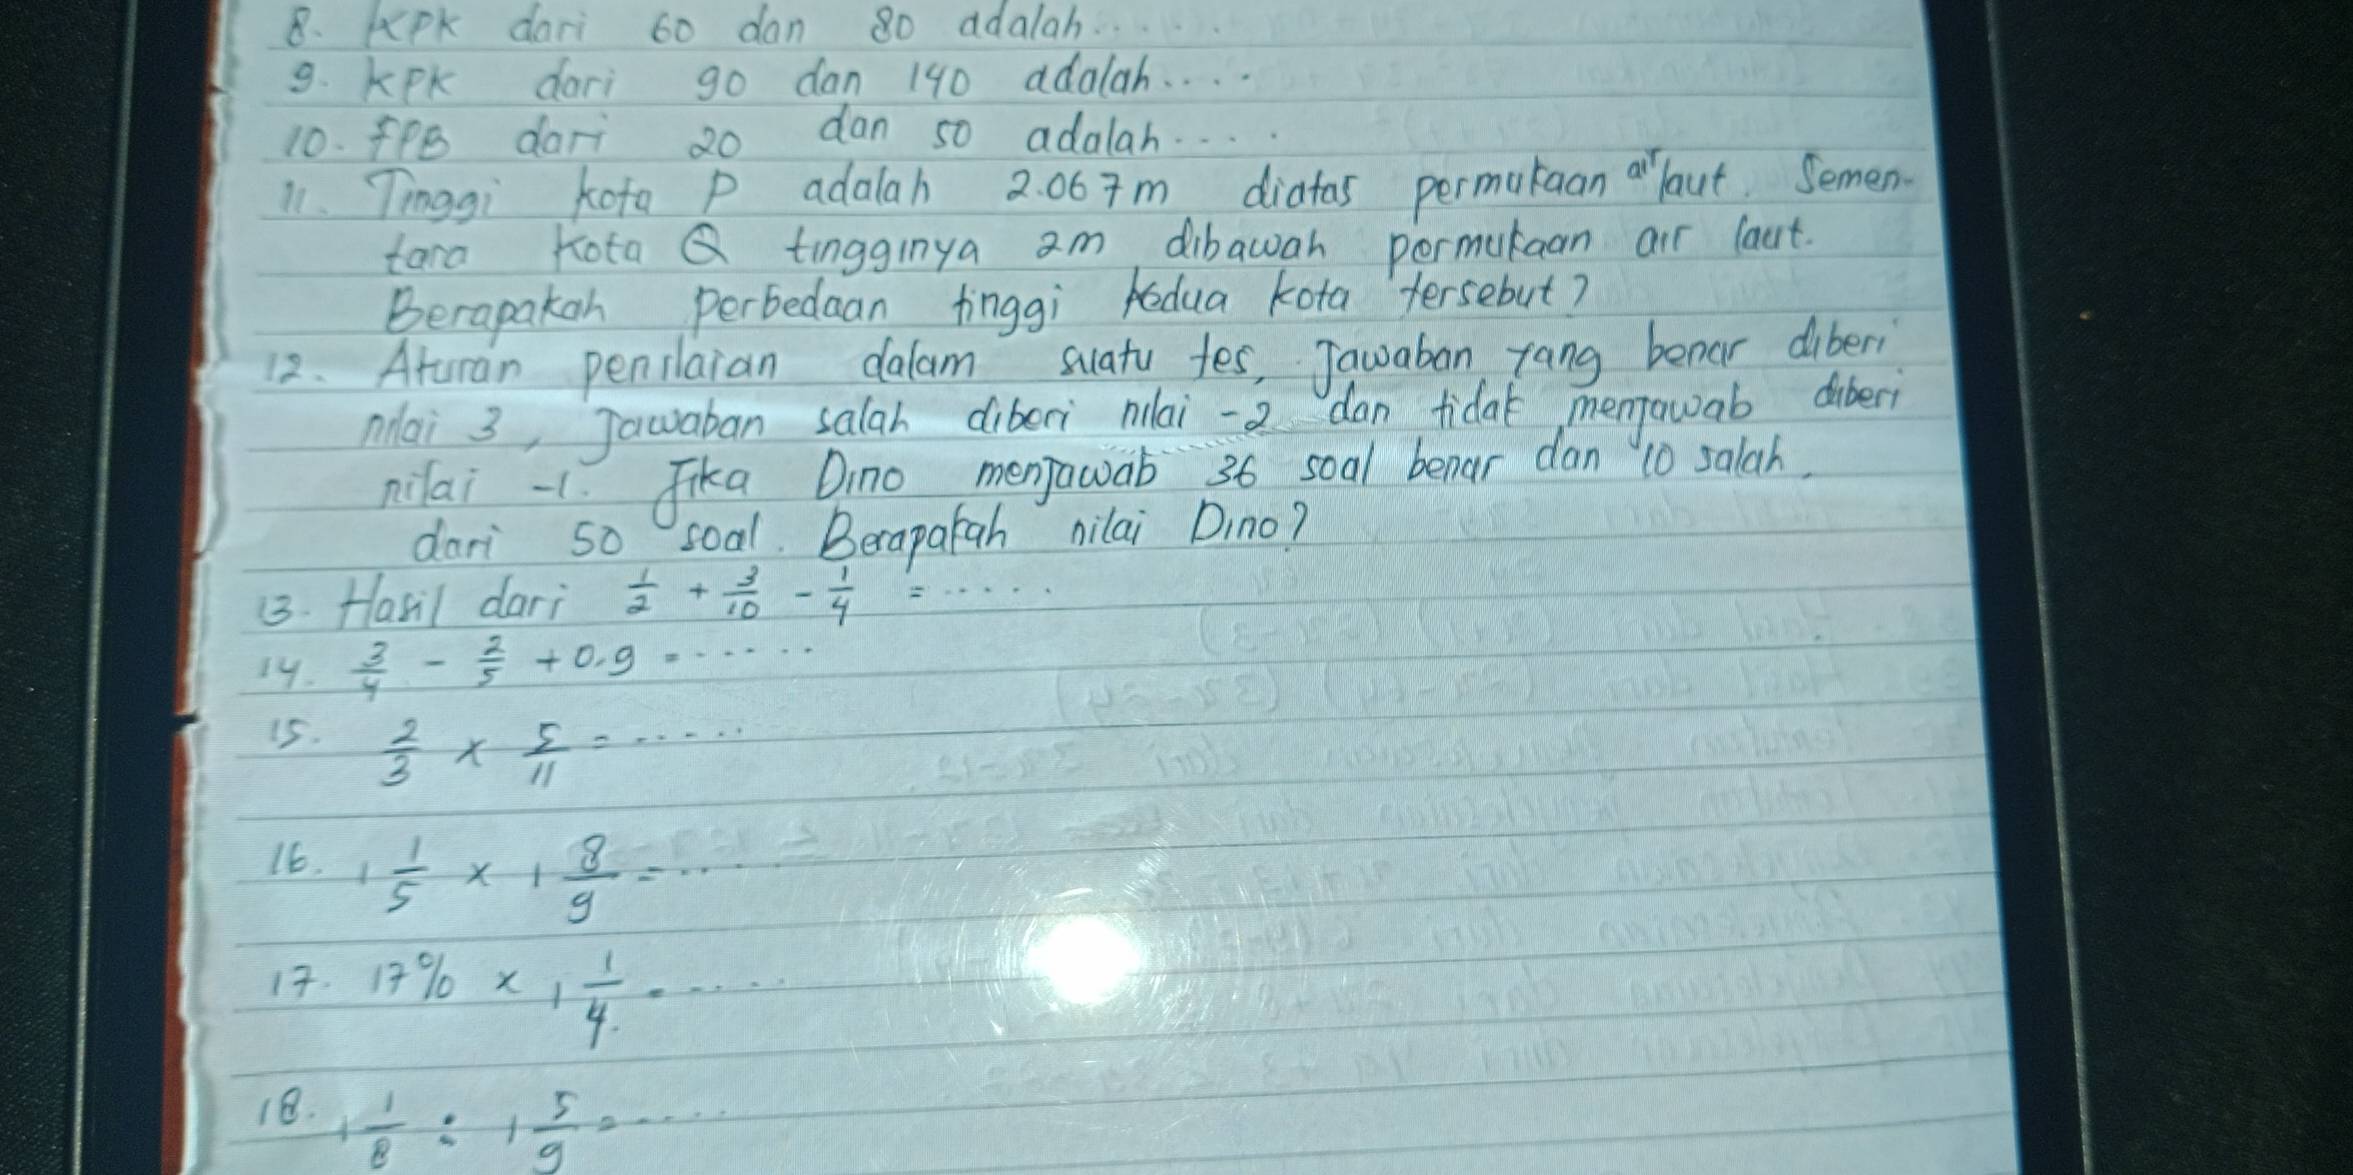 8. KPK dari 60 dan 80 adalah.....
9. KPK dari 90 dan 140 adalah....
10. FPB dari 20 dan 50 adalah....
11. Tinggi kota P adalah 2.067 m diatas permukaan air laut. Semen-
tara Kota Q tingginya 2m dibawah permukaan air laut.
Berapakah perbedaan tinggi kedua kota tersebut?
12. Aturan penilaian dalam suatu tes, Jawaban yang benar diberi
nilai 3, Jawaban salah diberi nilai -2 dan tidak menjawab diberi
nilai -1. Jika Dino menjawab 36 soal benar dan 10 salah.
dari 50 soal. Berapakah nilai Dino?
13. Hasil dari 1/2 + 3/10 - 1/4 = .....
14. 3/4 - 2/5 + 0,9 = .....
15. 2/3 x 5/11 = .....
16. 1 1/5 x 1 8/9 = ....
17. 17% x 1 1/4 = ....
18. 1 1/8 : 1 5/9 = ....